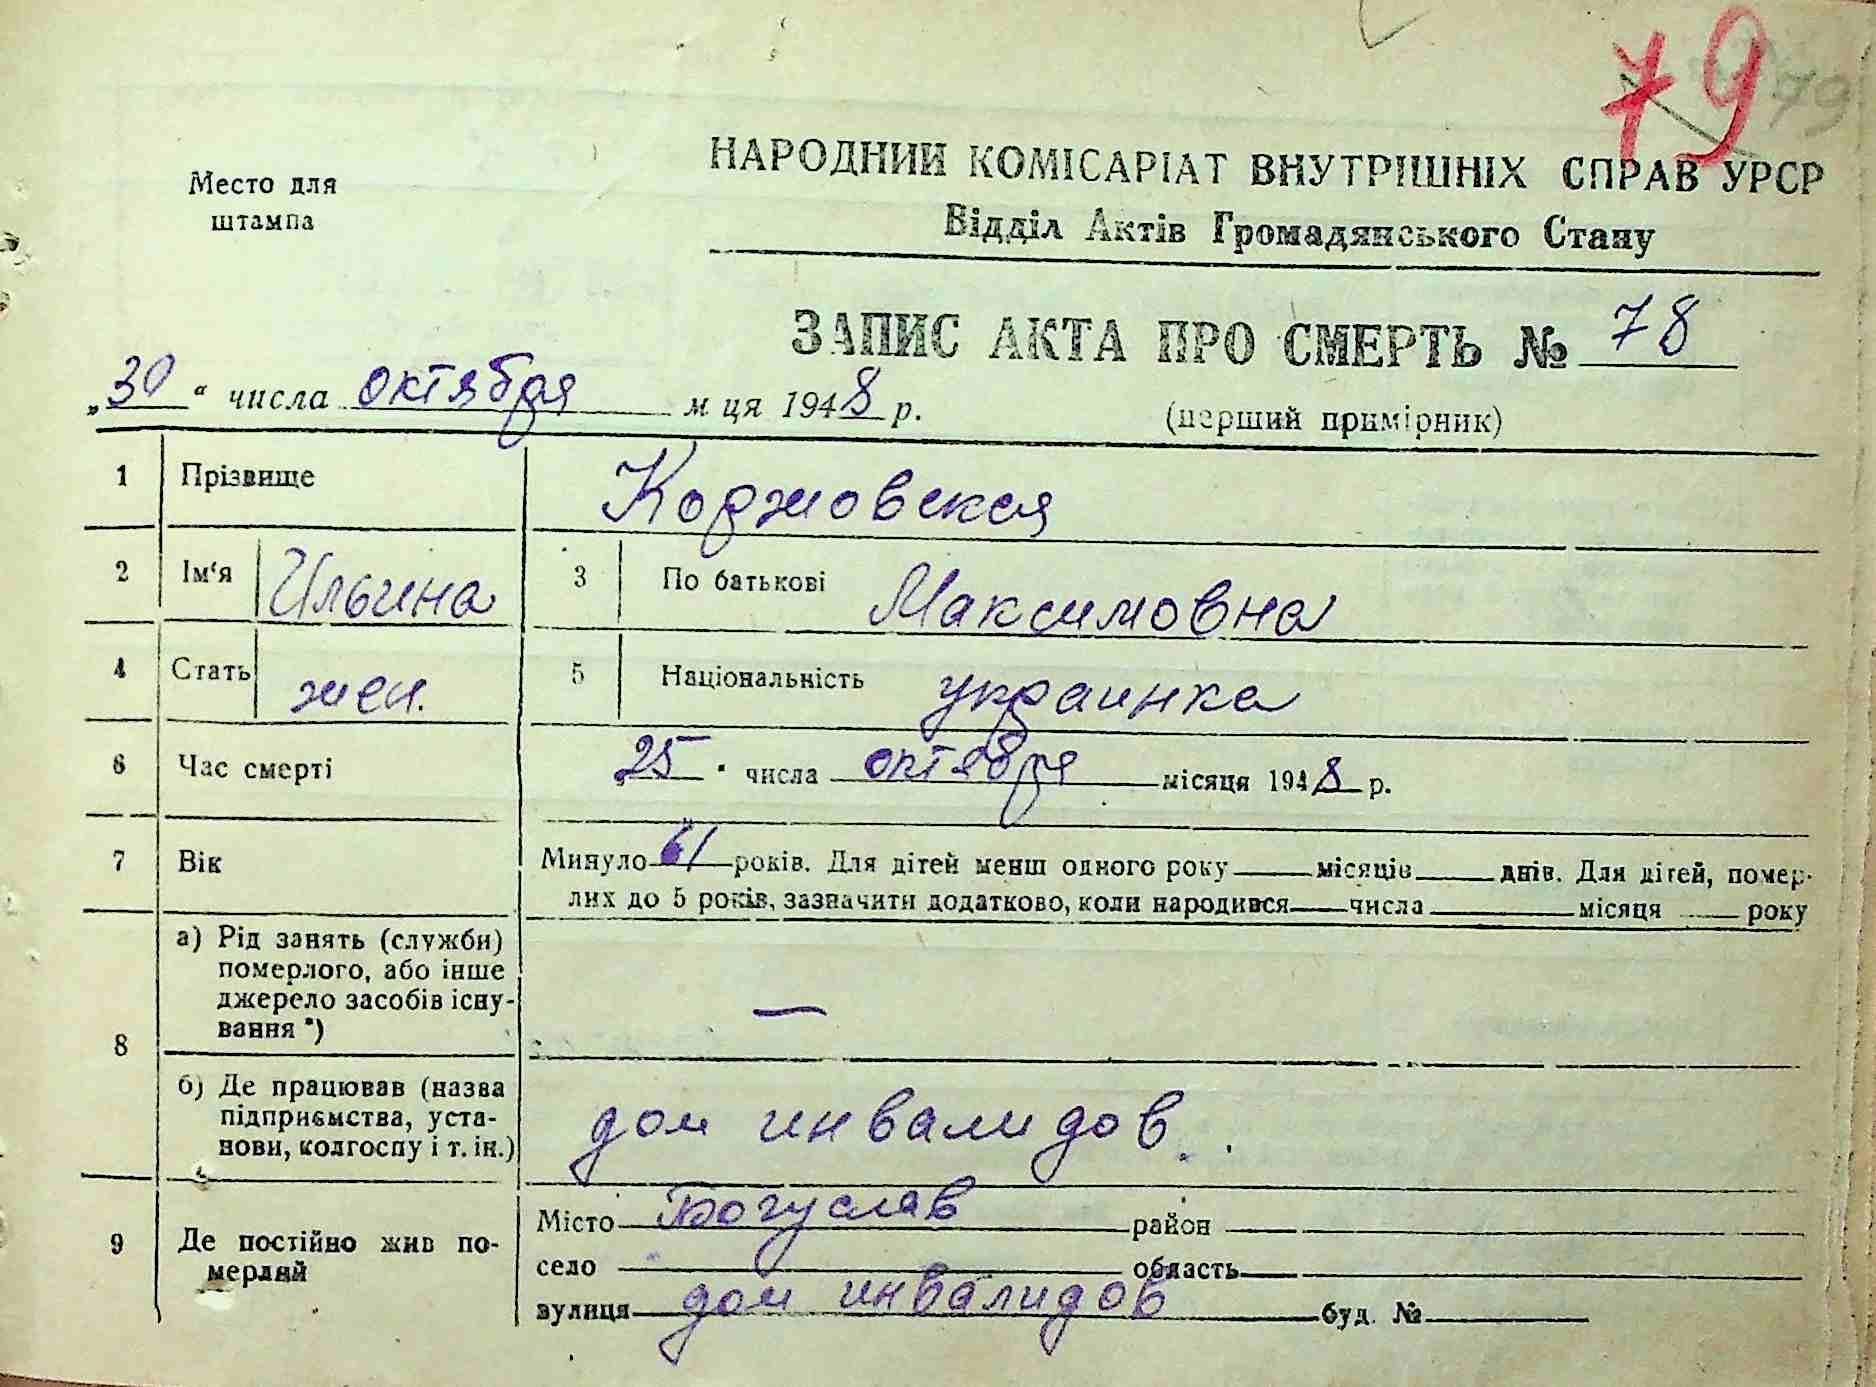 79
79
Место для
штампа
НАРОДНИЙ КОМІСАРІАТ ВНУТРІШНІХ СПРАВ УРСР
Відділ Актів Громадянського Стану
ЗАПИС АКТА ПРО СМЕРТЬ № 78
„30“ числа октября м ця 1948 р.
(перший примірник)
1 Прізвище Коржовская
2 Ім‘я Ильина 3 По батькові Максимовна
4 Стать жен. 5 Національність украинка
6 Час смерті „25“ числа октября місяця 1948 р.
7 Вік Минуло 61 років. Для дітей менш одного року місяців днів. Для дітей, помер-
лих до 5 років, зазначити додатково, коли народився числа місяця року
8 а) Рід занять (служби)
померлого, або інше
джерело засобів існу-
вання *) —
б) Де працював (назва
підприємства, уста-
нови, колгоспу і т. ін.) дом инвалидов.
9 Де постійно жив по-
мерлий
Місто Богуслав район
село область
вулиця дом инвалидов буд. №